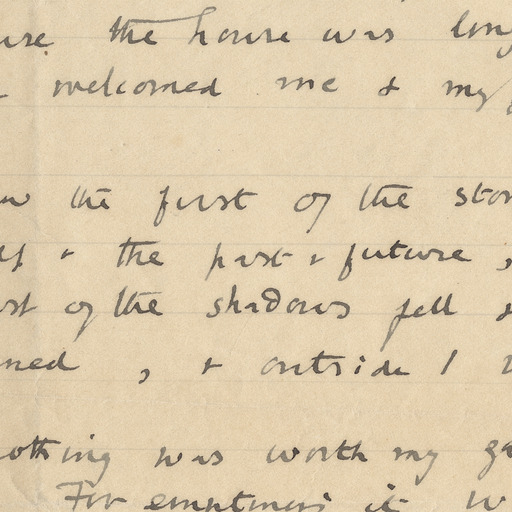 the house was
welcomed me & my
the first of the
& the past & future,
of the shadows fell
, & outside I
nothing was worth my
For emptiness it